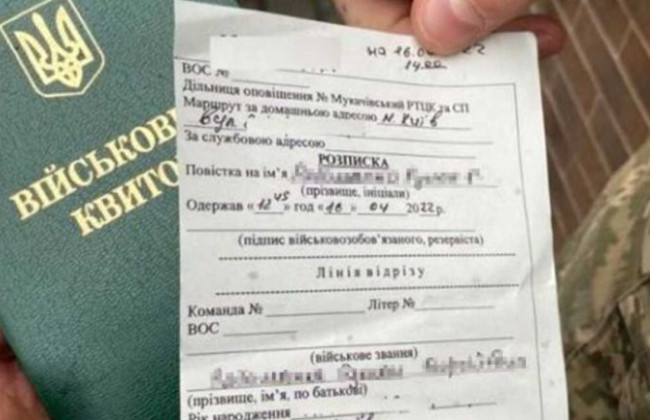 ВІЙСЬКОВ
КВИТО
на 16.0 22
14.00
ВОС №
Дільниця оповіщення № Мукачівський РТЦК та СП
Маршрут за домашньою адресою м. Київ
За службовою адресою
РОЗПИСКА
Повістка на ім'я
(прізвище, ініціали)
Одержав «12 45» год «16» 04 2022 р.
(підпис військовозобов'язаного, резервіста)
Лінія відрізу
Команда № Літер №
ВОС
(військове звання)
(прізвище, ім'я, по батькові)
Рік народження